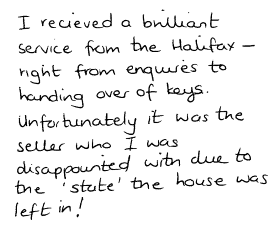 I recieved a brilliant
service from the Halifax –
right from enquires to
handing over of keys.
Unfortunately it was the
seller who I was
disappointed with due to
the 'state' the house was
left in!